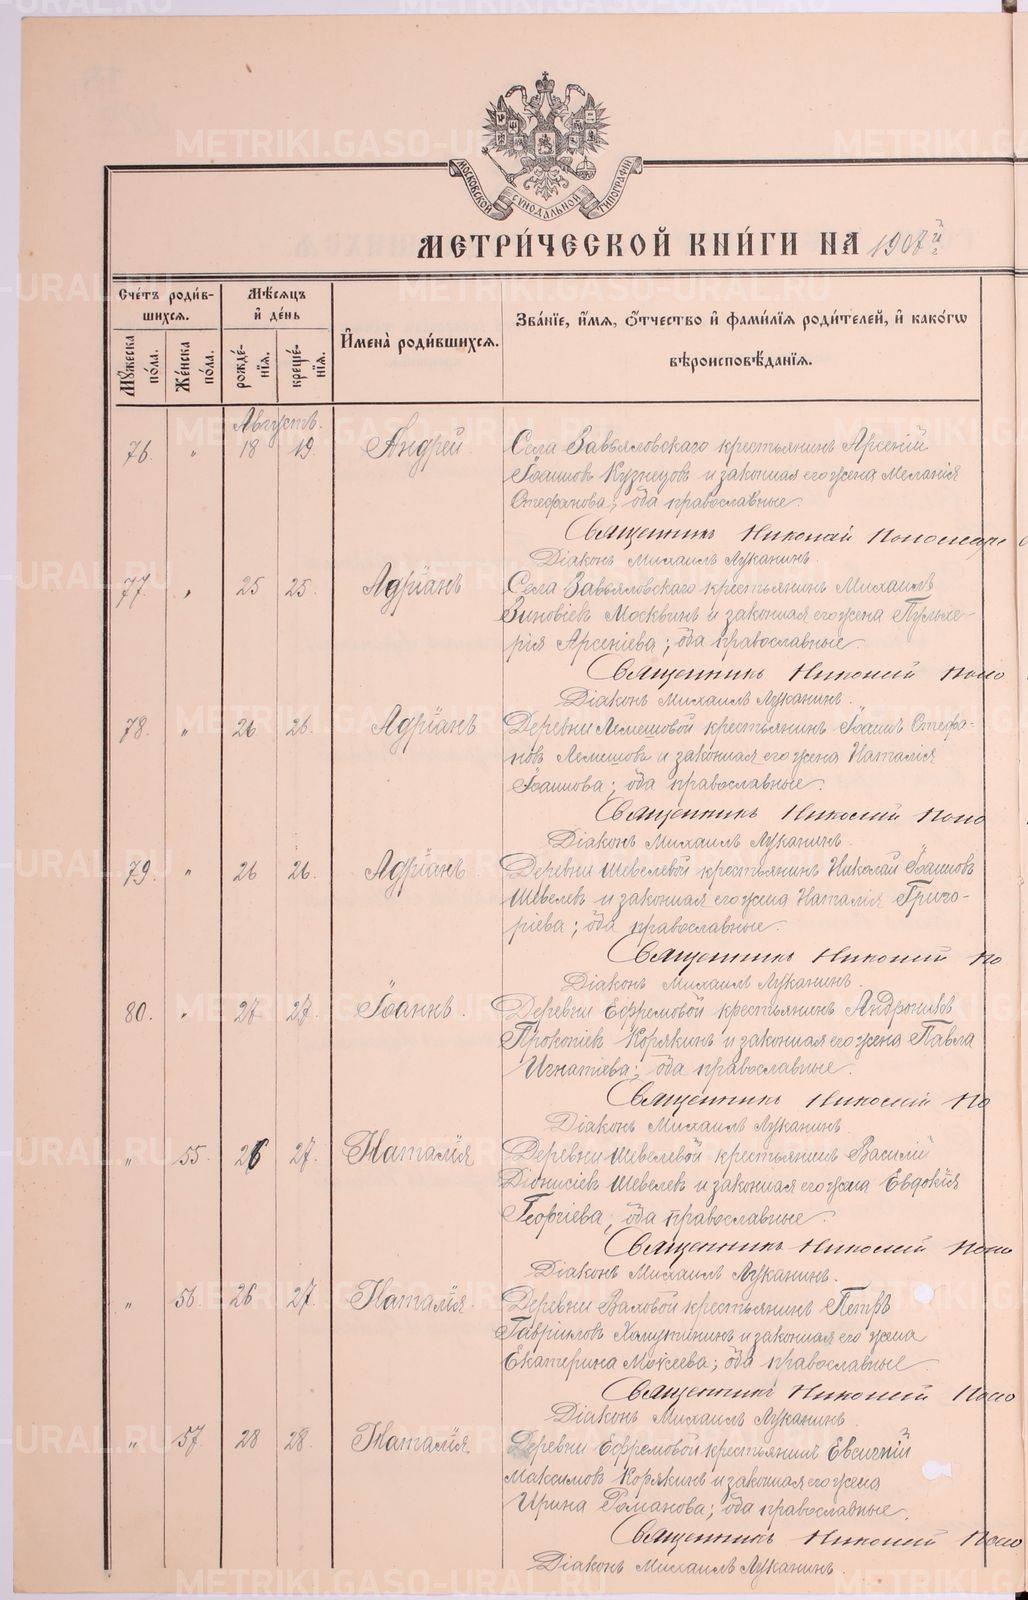 МОСКОВСКОЙ СѴНОДАЛЬНОЙ ТИПОГРАФІИ
МЕТРИ́ЧЕСКОЙ КНИ́ГИ НА 1907й г.
Сче́тъ роди́вшихсѧ.
Мꙋ́жеска по́ла.
Же́нска по́ла.
Мѣ́сѧцъ и҆ де́нь
рожде́нїѧ.
креще́нїѧ.
И҆мена̀ роди́вшихсѧ.
Зва́нїе, и҆́мѧ, ѻ҆́тчество и҆ фами́лїѧ роди́телей, и҆ како́гѡ
вѣроисповѣ́данїѧ.
Августъ.
76. " 18 19 Андрей Села Завьяловскаго крестьянинъ Арсеній
Іоанновъ Кузнецовъ и законная его жена Меланія
Стефанова; оба православные.
Священникъ Николай Пономаре
Діаконъ Михаилъ Луканинъ.
77. " 25 25. Адріанъ Села Завьяловскаго крестьянинъ Михаилъ
Зиновіевъ Москвинъ и законная его жена Пульхе-
рія Арсеніева; оба православные.
Священникъ Николай Поно
Діаконъ Михаилъ Луканинъ.
78. " 26 26. Адріанъ Деревни Лемешовой крестьянинъ Іоаннъ Стефа-
новъ Лемешовъ и законная его жена Наталія
Іоаннова; оба православные.
Священникъ Николай Поно
Діаконъ Михаилъ Луканинъ.
79. " 26 26. Адріанъ. Деревни Шевелевой крестьянинъ Николай Іоанновъ
Шевелевъ и законная его жена Наталія Григо-
ріева; оба православные.
Священникъ Николай По
Діаконъ Михаилъ Луканинъ.
80. " 27 27. Іоаннъ. Деревни Ефремовой крестьянинъ Андроникъ
Прокопіевъ Корякинъ и законная его жена Павла
Игнатіева; оба православные.
Священникъ Николай По
Діаконъ Михаилъ Луканинъ.
" 55. 26 27. Наталія Деревни Шевелевой крестьянинъ Василій
Діонисіевъ Шевелевъ и законная его жена Евдокія
Георгіева, оба православные.
Священникъ Николай Поно
Діаконъ Михаилъ Луканинъ.
" 56. 26 27. Наталія. Деревни Валовой крестьянинъ Петръ
Гавриловъ Хомутининъ и законная его жена
Екатерина Моисеева; оба православные.
Священникъ Николай Поно
Діаконъ Михаилъ Луканинъ.
" 57. 28 28. Наталія. Деревни Ефремовой крестьянинъ Евсигній
Максимовъ Корякинъ и законная его жена
Ирина Романова; оба православные.
Священникъ Николай Поно
Діаконъ Михаилъ Луканинъ.
METRIKI.GASO-URAL.RU